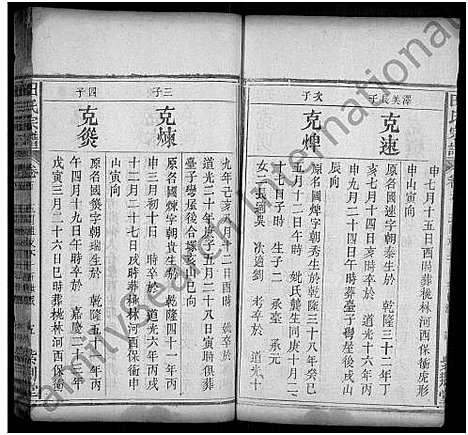 申七月十五日酉時葬桃林河西保衝虎形
申山寅向
澤美長子
克速
原名國速字朝泰生於 乾隆三十二年丁
亥七月十四日亥時卒於 道光十六年丙
申九月二十四日午時葬臺子嶝後戌山
辰向
次子
克煒
原名國煒字朝秀生於乾隆三十八年癸巳
五月十二日午時 妣氏龔生同庚十月二
日子時 生子二 臺元 承元
女二 長適吳 次適劉 老卒於 道光十
九年己亥 月 二日酉時 妣卒於
道光二十年庚子五月二十八日寅時俱葬
臺子嶝屋後合塚亥山巳向
三子
克煉
原名國煉字朝貴生於 乾隆四十一年丙
申三月初十日 時卒於 道光六年丙戌
十二月二十七日戌時葬桃林河西保衝申
山寅向
四子
克燢
原名國燢字朝瑞生於 乾隆五十一年丙
午四月十九日午時卒於 嘉慶二十三年
戊寅三月二十六日巳時葬桃林河西保衝
田氏宗譜
amilysearch International